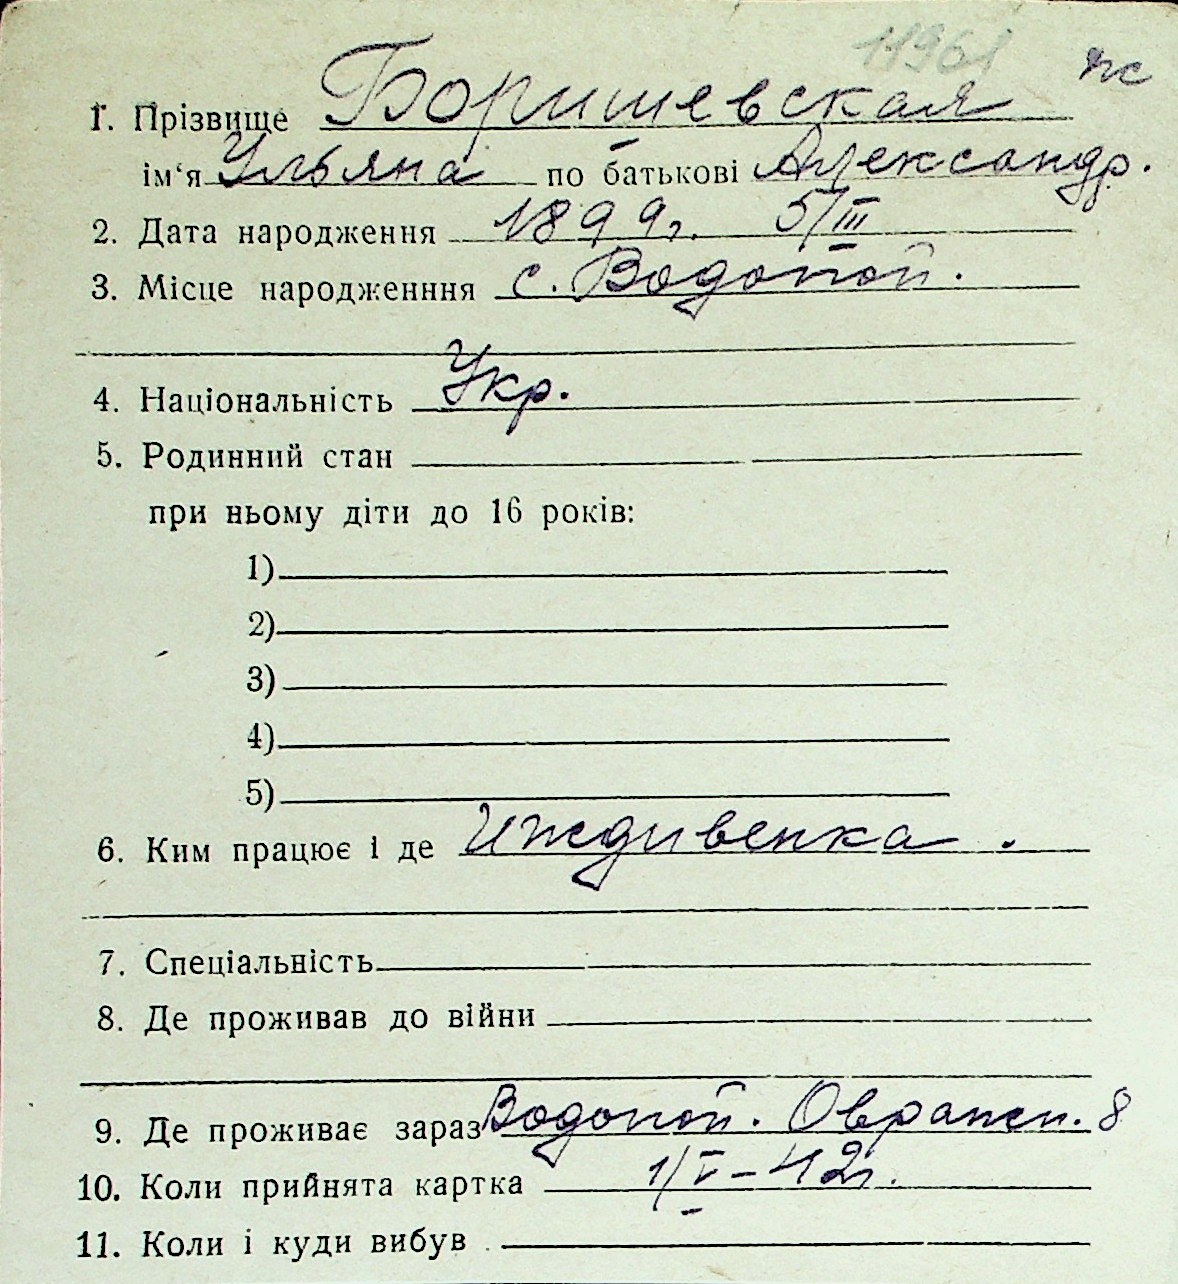 11961 пс
1. Прізвище Боришевская
ім‘я Ульяна по батькові Александр.
2. Дата народження 1899г. 5/III
3. Місце народженння с. Водопой.
4. Національність Укр.
5. Родинний стан
при ньому діти до 16 років:
1)
2)
3)
4)
5)
6. Ким працює і де Иждивенка.
7. Спеціальність
8. Де проживав до війни
9. Де проживає зараз Водопой. Овражн. 8
10. Коли прийнята картка 1/V-42г.
11. Коли і куди вибув